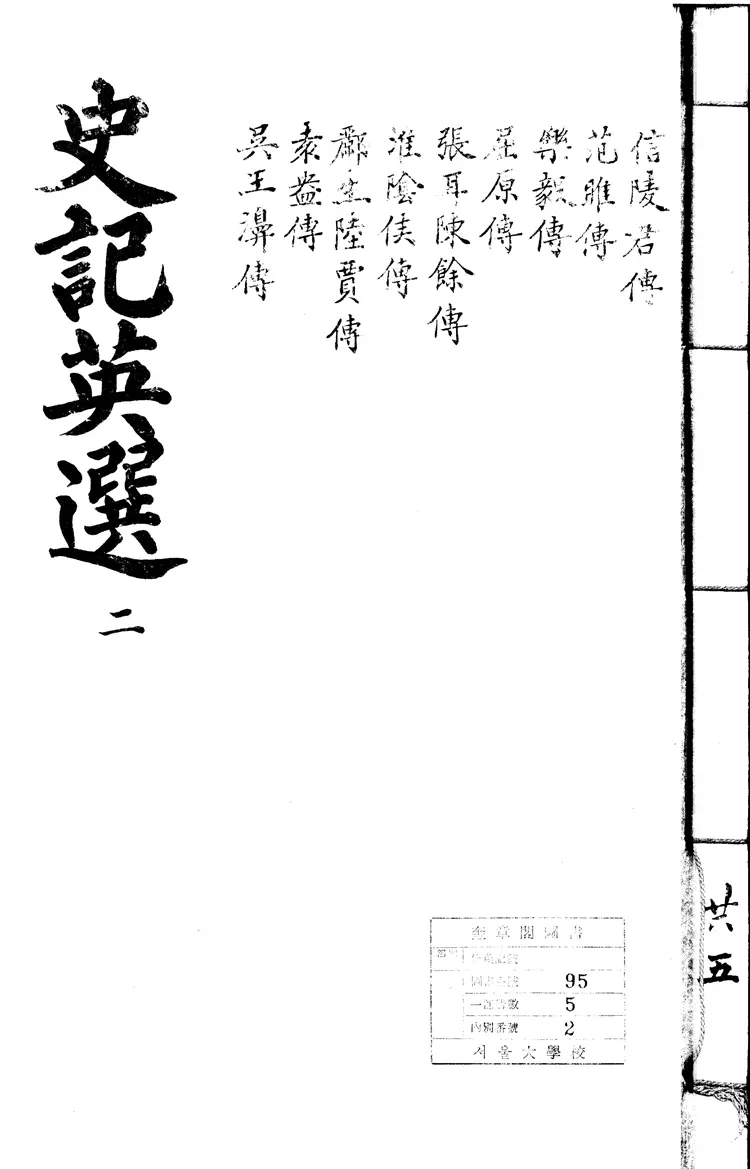 信陵君傳
范雎傳
樂毅傳
屈原傳
張耳陳餘傳
淮陰侯傳
酈生陸賈傳
袁盎傳
吳王濞傳
史記英選
二
共五
奎章閣圖書
圖書番號 95
一部冊數 5
內別番號 2
서울大學校